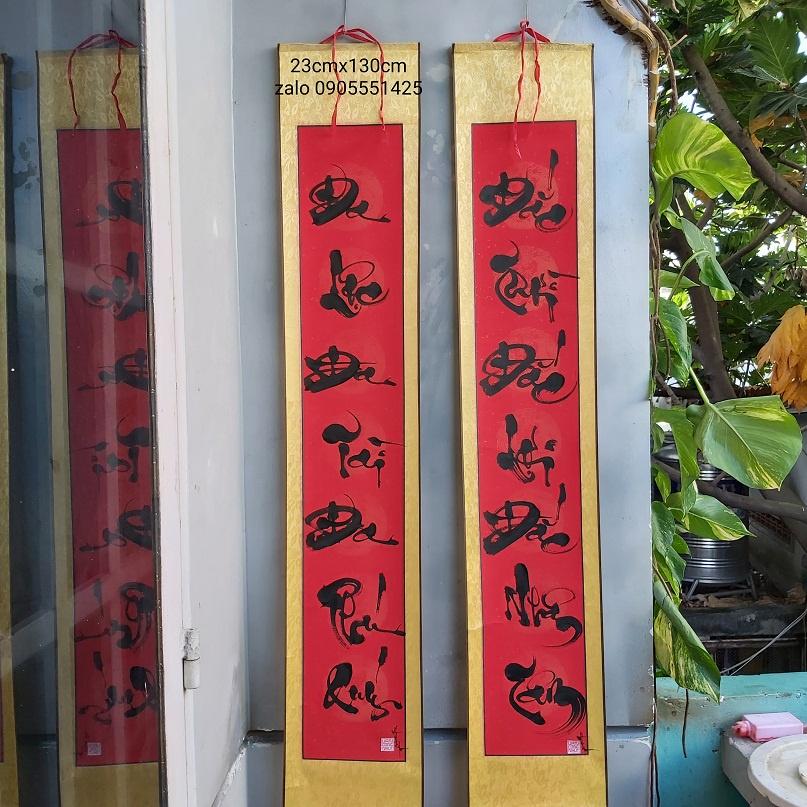 23cmx130cm
zalo 0905551425
Đa
Lộc
Đa
Tài
Đa
Phú
Quý
Đắc
Thời
Đắc
Lợi
Đắc
Nhân
Tâm